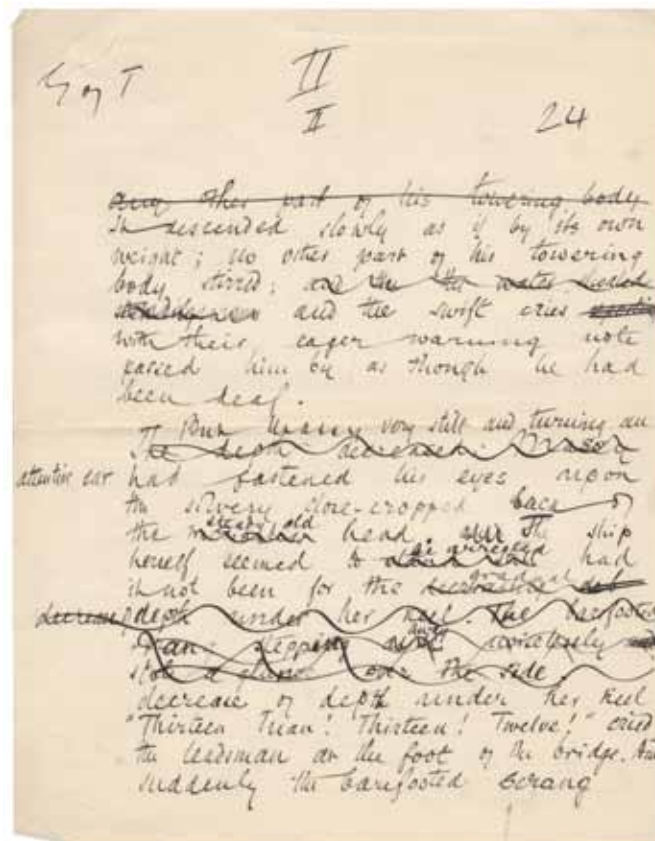 II
II
24
any other part of his towering body
it descended slowly as if by its own
weight; no other part of his towering
body stirred; and the the water
and the swift cries
with their eager warning note
passed him by as though he had
been deaf.
But Massy very still and turning an
The depth decreased. Massy
attentive ear had fastened his eyes upon
the silvery close-cropped back of
the steady old head. The ship
herself seemed to be arrested had
it not been for the gradual
decrease depth under her keel. The barefooted
stepping
stole a glance over the side.
decrease of depth under her keel
"Thirteen more! Thirteen! Twelve!" cried
the leadsman at the foot of the bridge. And
suddenly the barefooted Serang